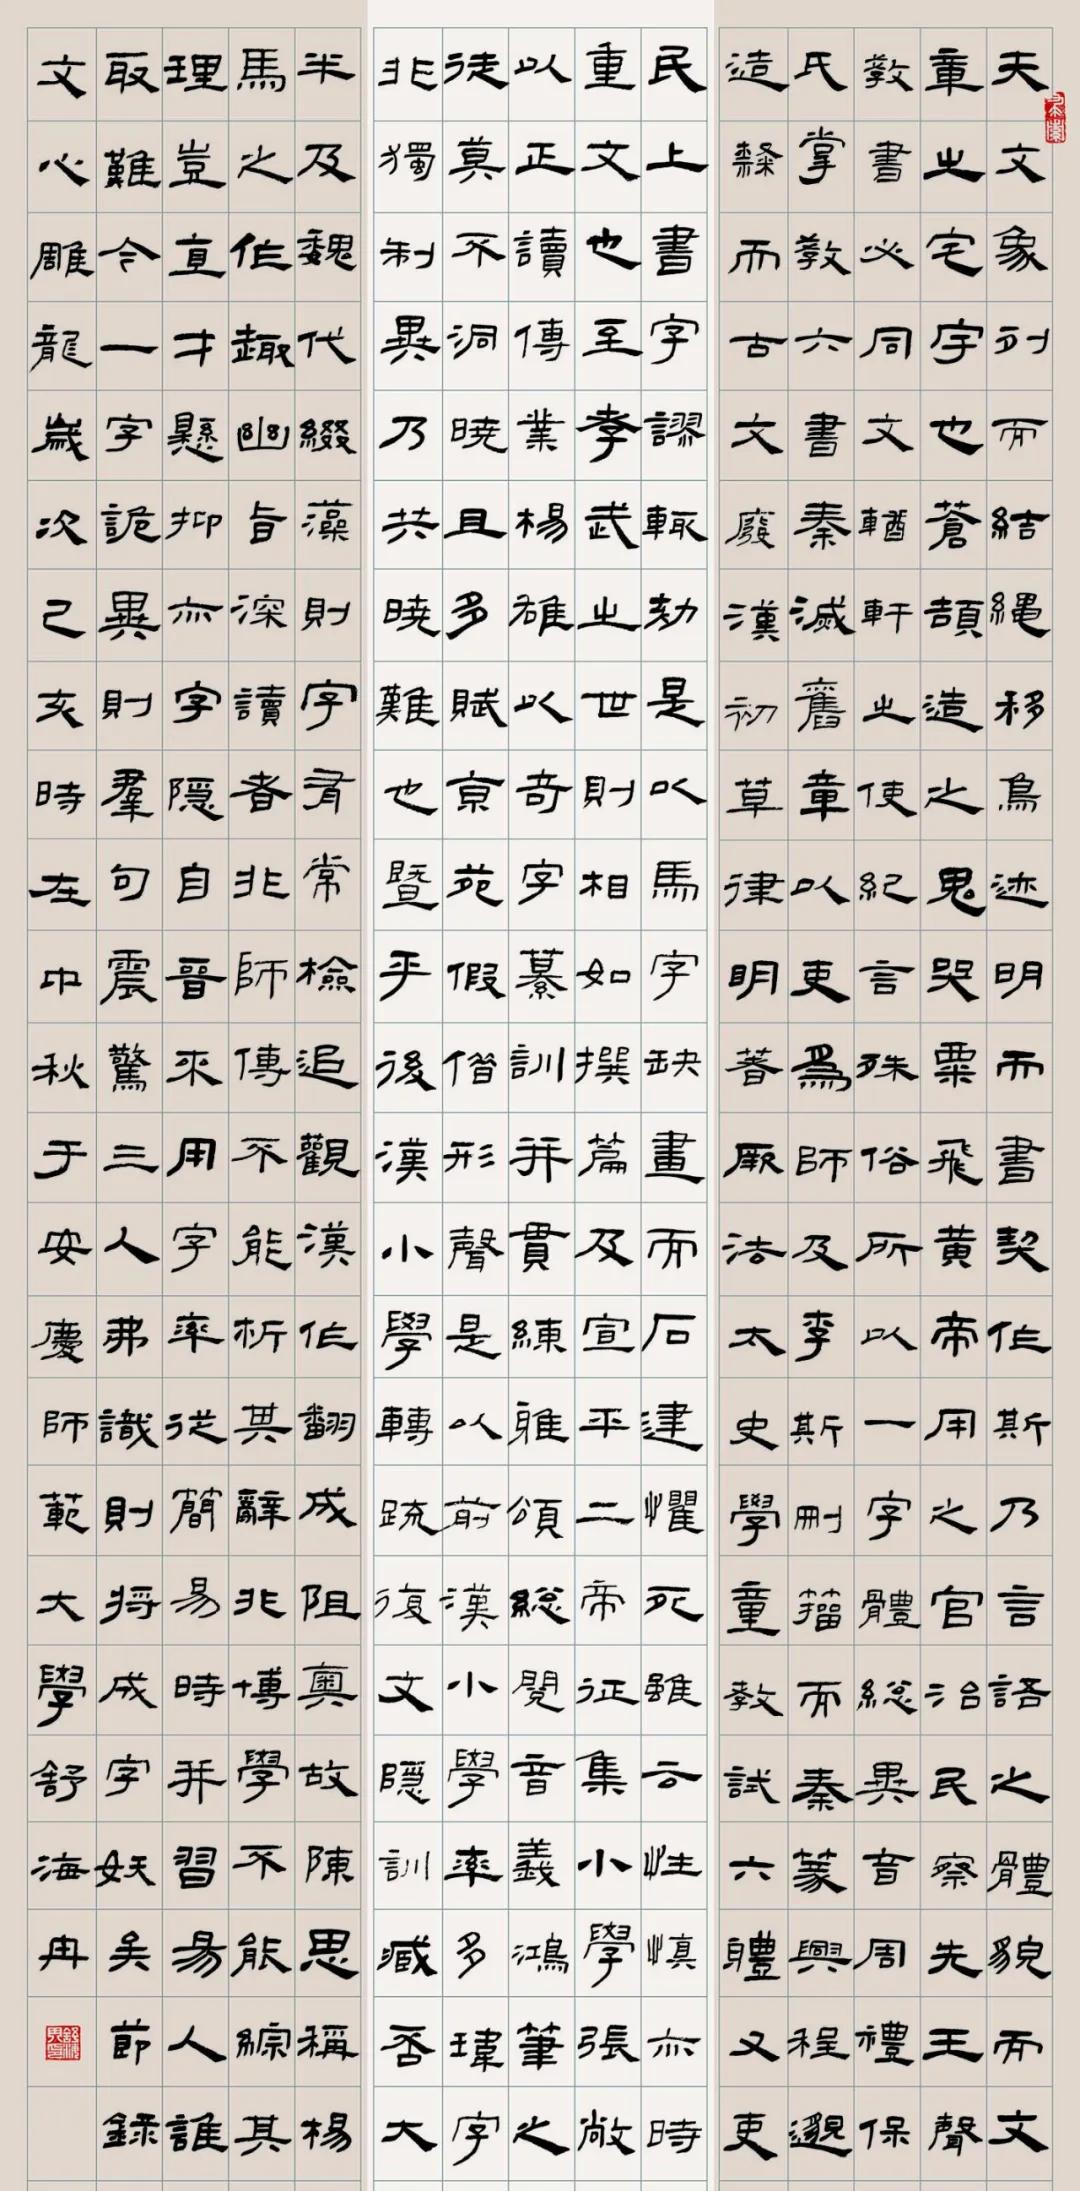 夫文象列而結繩移鳥迹明而書契作斯乃言語之體貌而文
章之宅字也蒼頡造之鬼哭粟飛黄帝用之官治民察先王聲
教書必同文輶軒之使紀言殊俗所以一字體総異音周禮保
氏掌教六書秦滅舊章以吏爲師及李斯刪籀而秦篆興程邈
造隸而古文廢漢初草律明著厥法太史學童教試六體又吏
民上書字謬輒劾是以馬字缺畫而石建懼死雖云性慎亦時
重文也至孝武之世則相如撰篇及宣平二帝征集小學張敞
以正讀傳業楊雄以奇字纂訓并貫練雅頌総閲音義鴻筆之
徒莫不洞曉且多賦京苑假借形聲是以前漢小學率多瑋字
非獨制異乃共曉難也暨乎後漢小學轉疏復文隱訓臧否大
半及魏代綴藻則字有常檢追觀漢作翻成阻奥故陳思稱楊
馬之作趣幽旨深讀者非師傳不能析其辭非博學不能綜其
理豈直才懸抑亦字隱自晉來用字率從簡易時并習易人誰
取難今一字詭異則羣句震驚三人弗識則將成字妖矣節録
文心雕龍歲次己亥時在中秋于安慶師範大學舒海冉